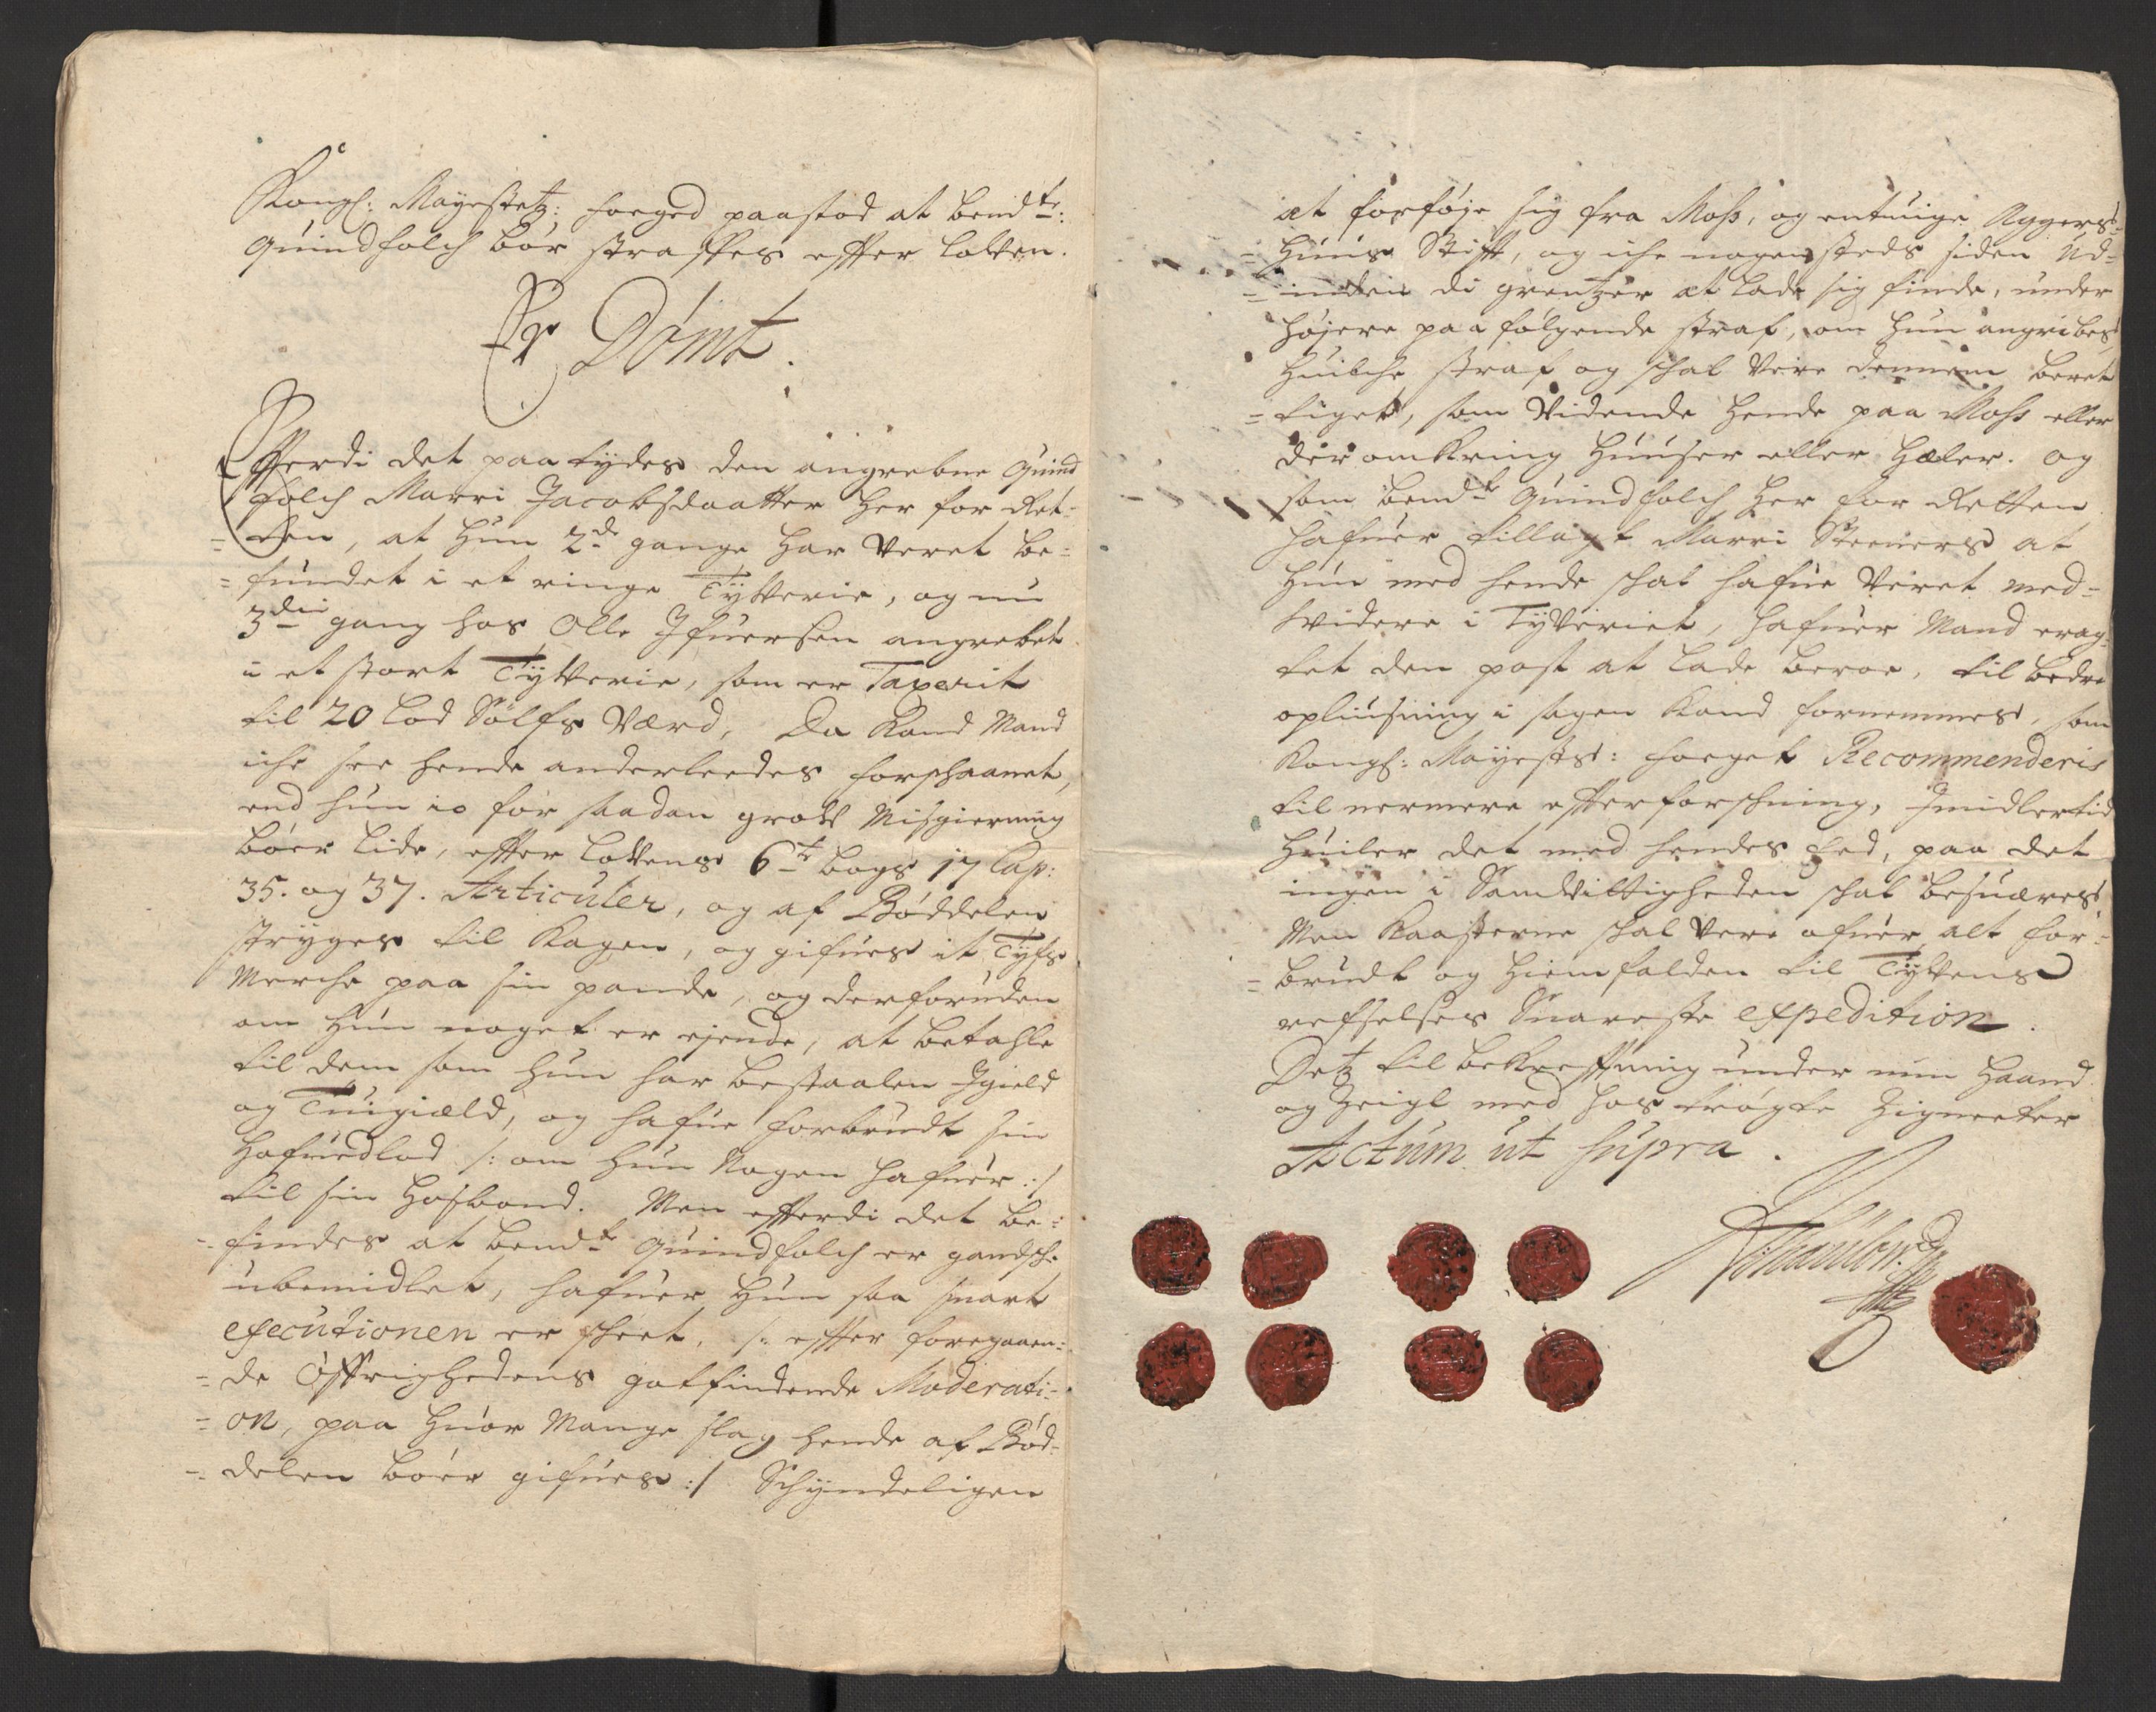 Kongl: Mayestetz: Foeged paastod at bemdte:
Quindfolch bör straffes effter Lowen.
Er Dömt.
Efterdi det paa lydes den angrebne Quind
folch Marri Jacobsdaatter her for Ret-
=ten, at hun 2de gange har veret be=
=fundet i et ringe Tyverie, og nu
3die gang hos Olle Ifuersen angrebet
i et stort Tyverie, som er Taxerit
til 20 lod Sölfs Værd, Da Kand Mand
iche see hende anderleedes forschaanet,
end hun jo for saadan groff Misgierning
böer lide, effter Lowens 6te bogs 17 Cap:
35. og 37. Articuler, og af Böddelen
stryges til Kagen, og gifues it Tyfs
Merche paa sin pande, og derforuden
om hun noget er ejende, at betahle
til dem som hun har bestaalen Igield
og Tuigiæld, og hafue forbrudt sin
Hofuedlod /: om hun Nogen hafuer :/
til sin Hosbond. Men effterdi det be=
=findes at bemdte Quindfolch er gandsche
ubemidlet, hafuer hun saa snart
executionen er scheet, /: effter foregaaen=
=de Öffrighedens gotfindende Moderati=
=on, paa huor Mange slag hende af Böd=
=delen böer gifues :/ Schyndeligen
at forföje sig fra Moss, og entuige Aggers=
=huus Stift, og iche nogensteds siden Ud=
=inden di grentzer at lade sig finde, under
höjere paafölgende straf, om hun angribes,
huilche straf og schal Vere dennem beret
=tiget, som Vidende hende paa Moss eller
der omkring huuser eller Hæler. og
som bemdte Quindfolch her for Retten
hafuer tillagt Marri Steeners at
hun med hende schal hafue Veret med=
=videre i Tyveriet, hafuer Mand erag=
tet den post at lade beroe, til bedre
opliusning i sagen Kand fornemmes, som
Kongl: Mayests: Foeget Recommenderis
til nermere effterforschning, Imidlertid
huiler det med hendes Eed, paa det
ingen i Samvittigheden schal besuæres
Men Kaasterne schal Vere ofuer alt for=
=brudt og hiemfalden til Tyvens
refselses Snareste expedition.
Detz til bekreftning under min Haand
og Zeigl med hos trögte Zigneeter
Actum ut supra.